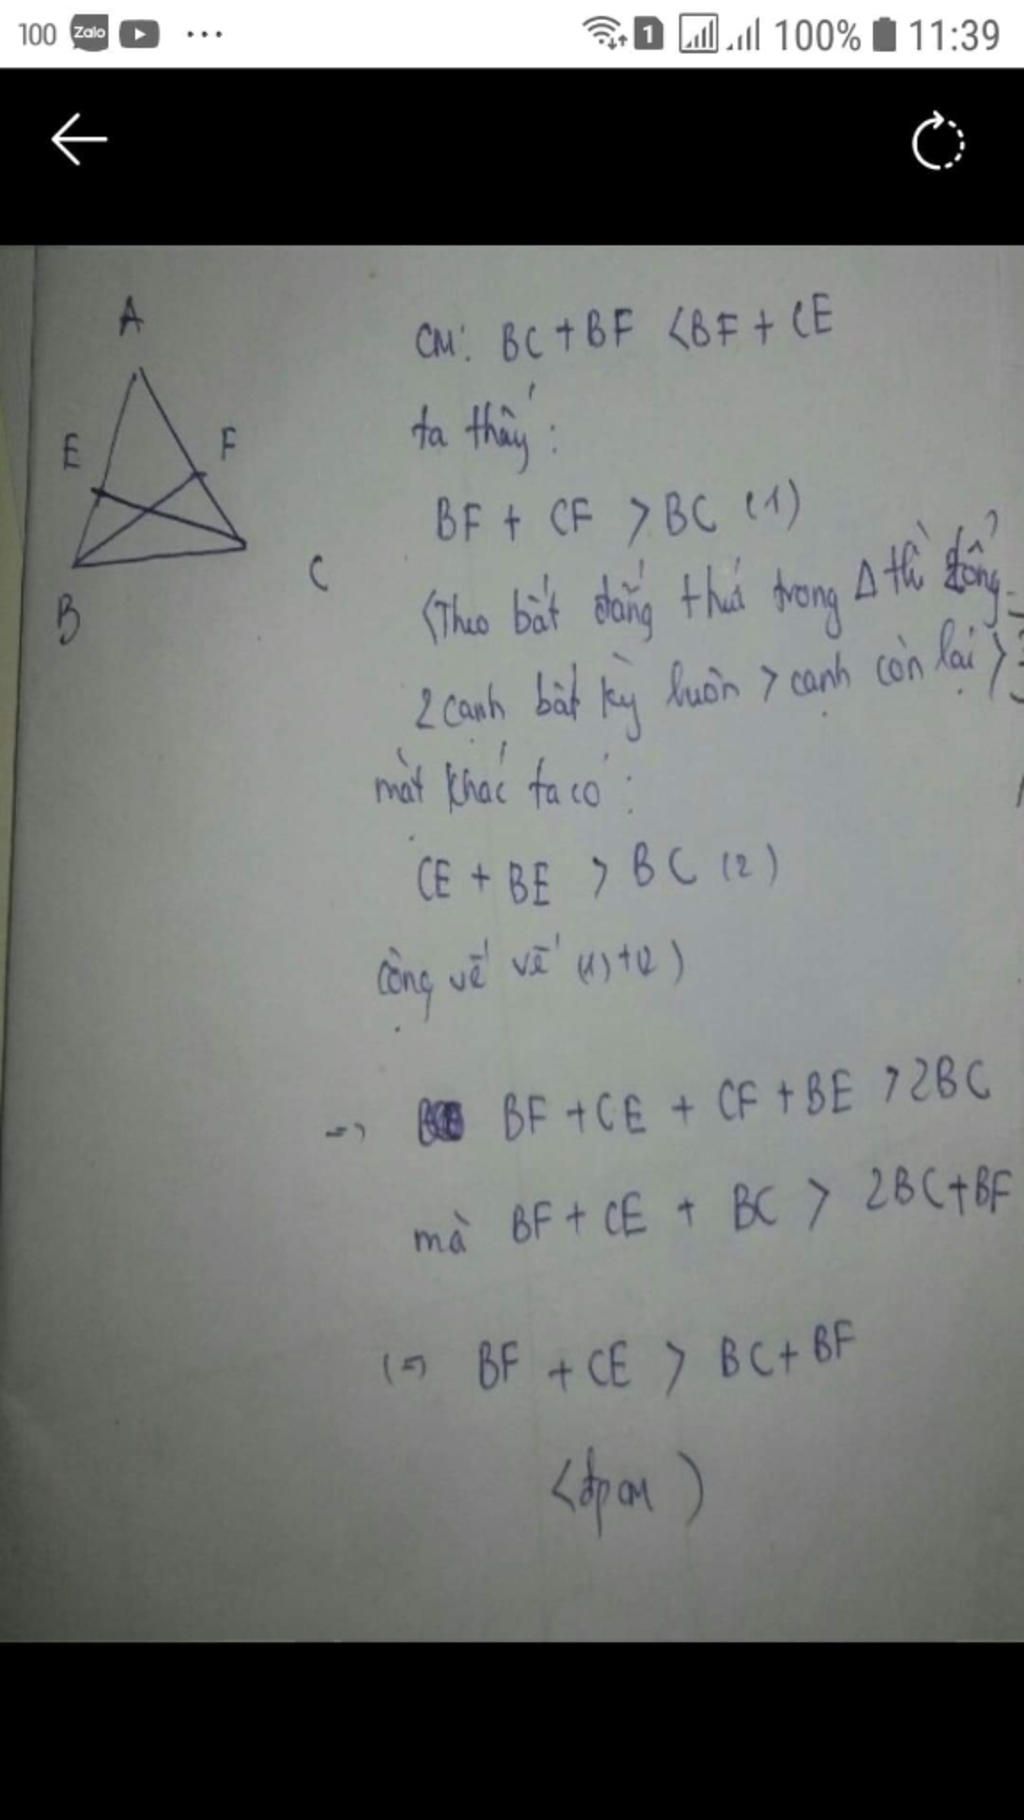 100 Zalo ... 1 100% 11:39
A
E F
B C
CM: BC + BF < BF + CE
ta thấy:
BF + CF > BC (1)
(Theo bất đẳng thứ trong Δ thì tổng
2 cạnh bất kỳ luôn > cạnh còn lại)
mặt khác ta có:
CE + BE > BC (2)
cộng vế vế (1)+(2)
=> BF + CE + CF + BE > 2BC
mà BF + CE + BC > 2BC + BF
(=) BF + CE > BC + BF
(đpcm)